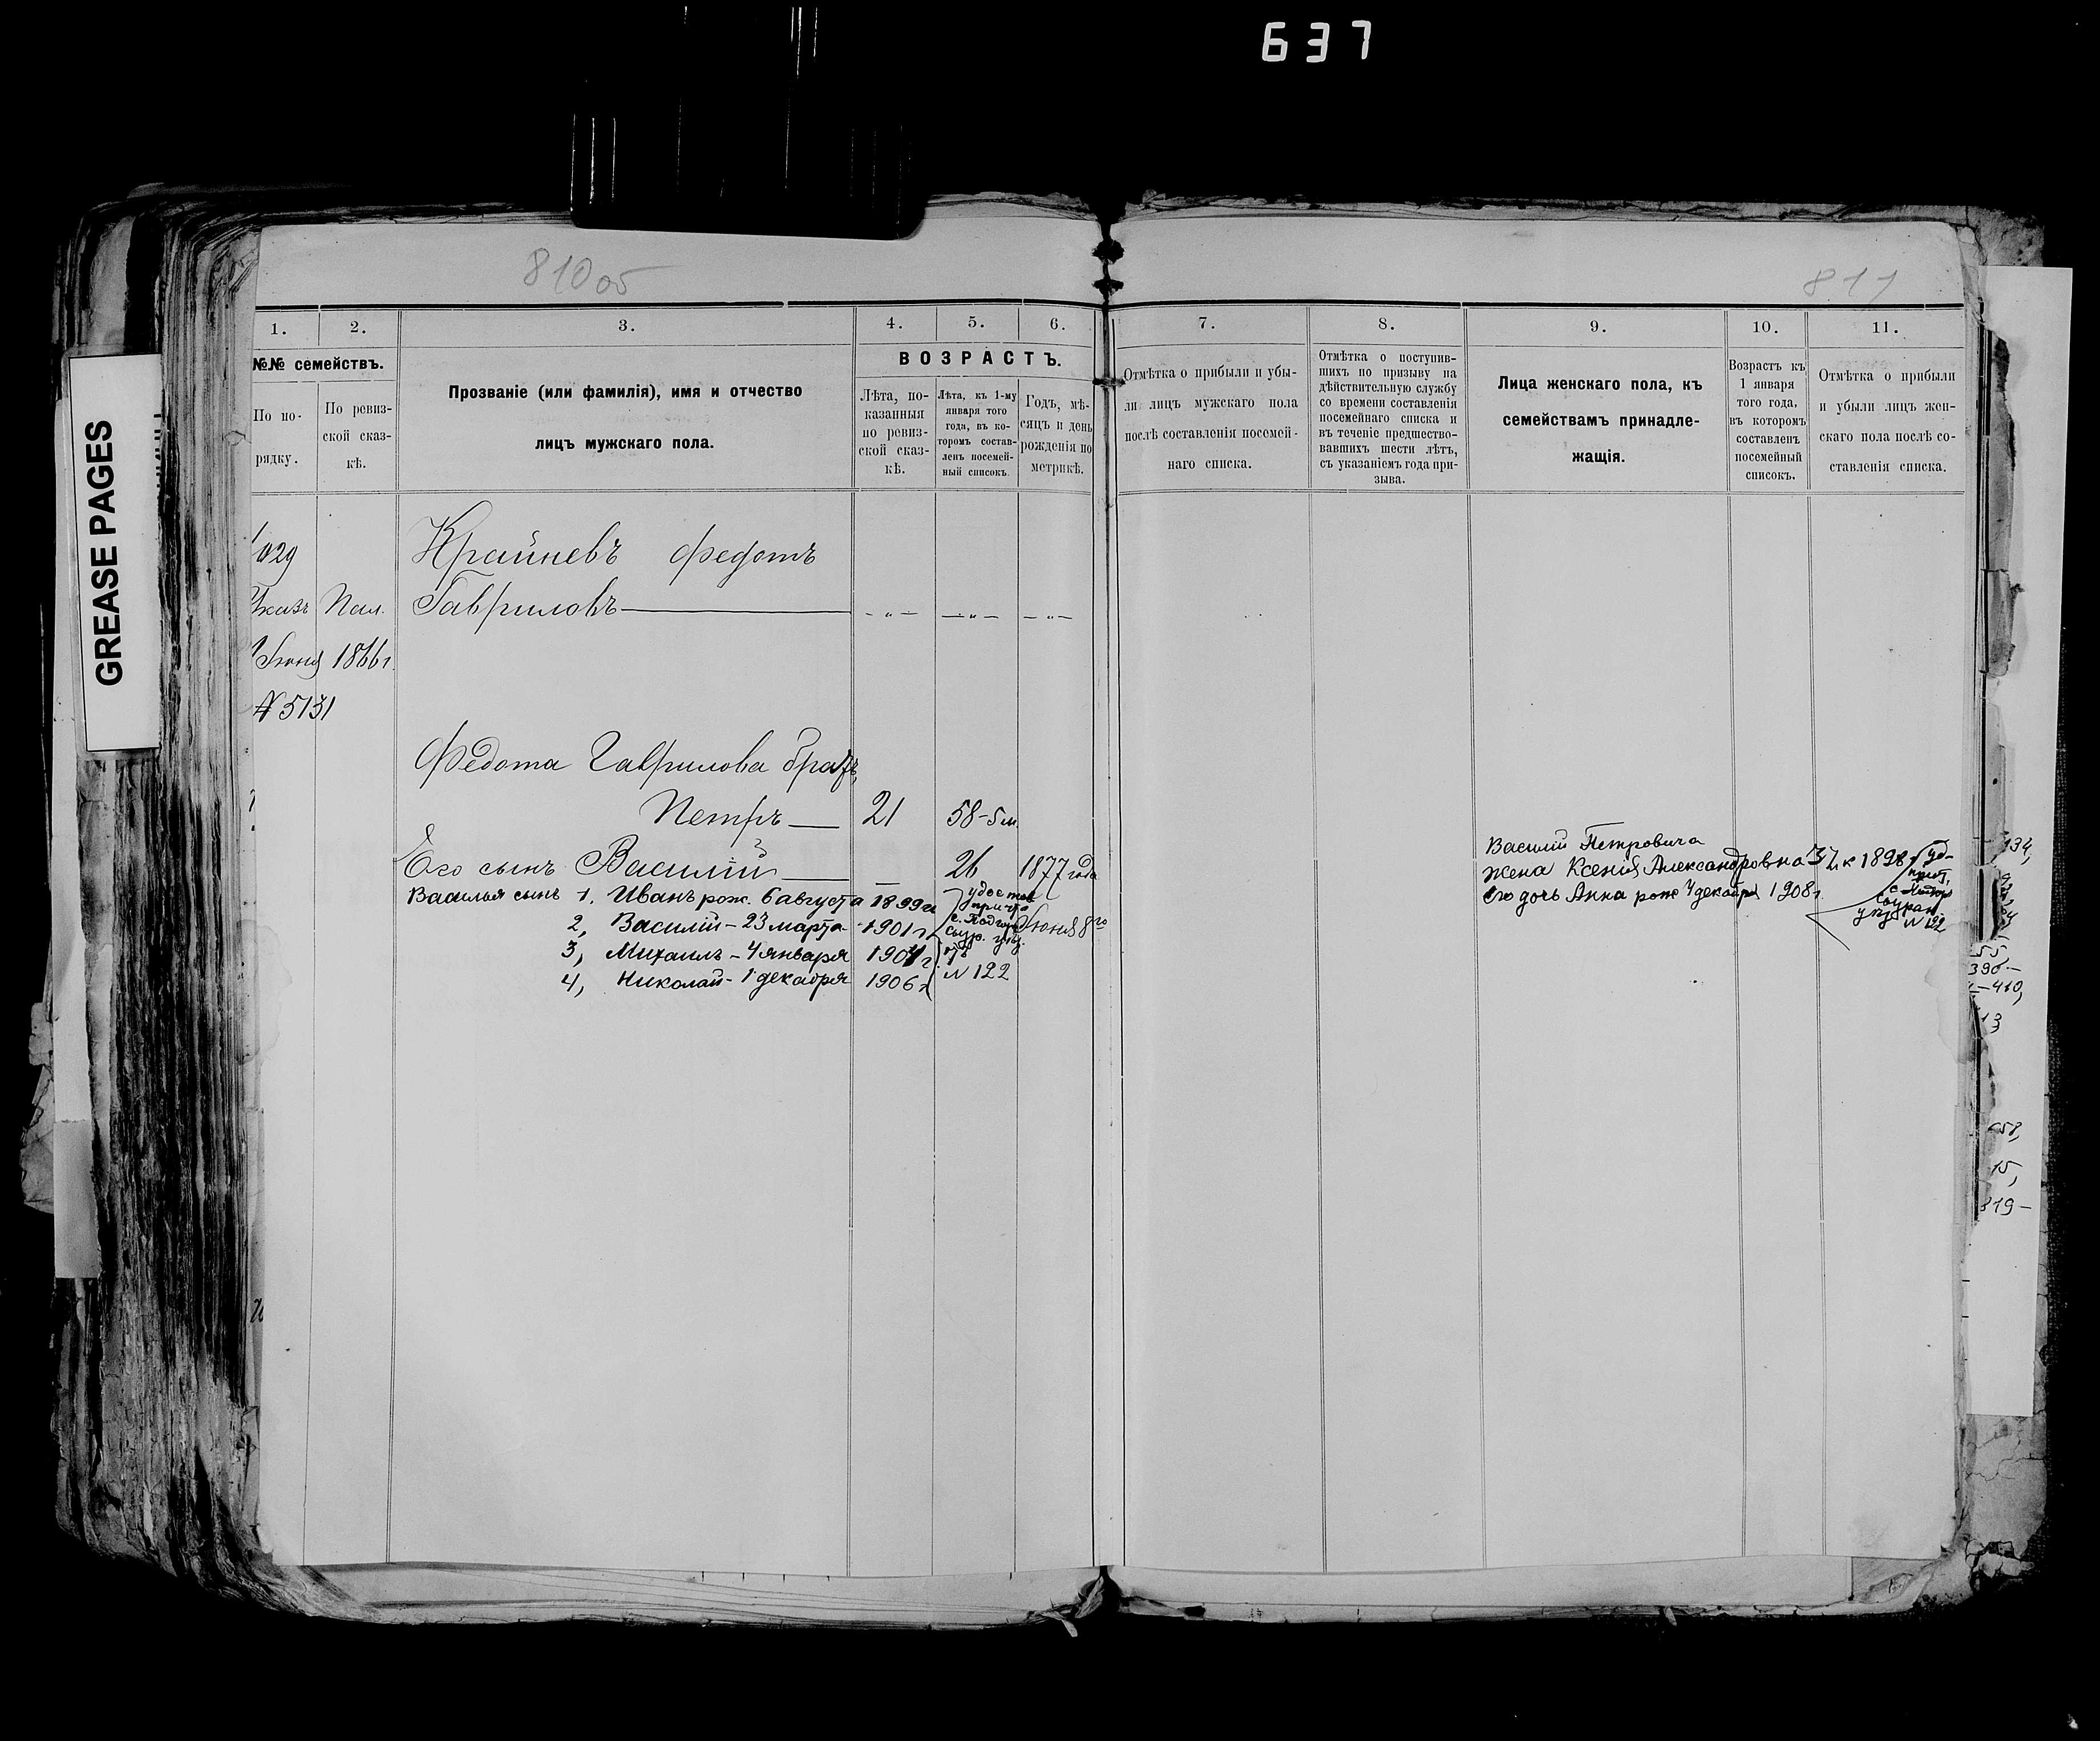 637
GREASE PAGES
810 об
811
1.
2.
3.
4.
5.
6.
7.
8.
9.
10.
11.
№№ семействъ.
По по-
рядку.
По ревиз-
ской сказ-
кѣ.
Прозваніе (или фамилія), имя и отчество
лицъ мужскаго пола.
ВОЗРАСТЪ.
Лѣта, по-
казанныя
по ревиз-
ской сказ-
кѣ.
Лѣта, къ 1-му
января того
года, въ ко-
торомъ состав-
ленъ посемей-
ный списокъ.
Годъ, мѣ-
сяцъ и день
рожденія по
метрикѣ.
Отмѣтка о прибыли и убы-
ли лицъ мужскаго пола
послѣ составленія посемей-
наго списка.
Отмѣтка о поступив-
шихъ по призыву на
дѣйствительную службу
со времени составленія
посемейнаго списка и
въ теченіе предшество-
вавшихъ шести лѣтъ,
съ указаніемъ года при-
зыва.
Лица женскаго пола, къ
семействамъ принадле-
жащія.
Возрастъ къ
1 января
того года,
въ которомъ
составленъ
посемейный
списокъ.
Отмѣтка о прибыли
и убыли лицъ жен-
скаго пола послѣ со-
ставленія списка.
1029 Крайневъ Федотъ
Указъ Пал. Гавриловъ — - „ - - „ - - „ -
Іюня 1866 г.
№ 5131
Федота Гаврилова братъ,
Петръ — 21 58-5 м.
Его сынъ Василій — — 26 1877 года
Іюня 8го
Василья сынъ 1. Иванъ рож. 6 августа 1899 г.
2, Василій - 23 марта - 1901 г.
3, Михаилъ - 4 января 1904 г.
4, Николай - 1 декабря 1906 г.
причта
с.
№ 122
Василій Петровича
жена Ксенія Александровна
его дочь Анна рож 4 декабря 1908 г.
с.
№ 122
134,
55,
390 —
— 410,
13
15,
819 —